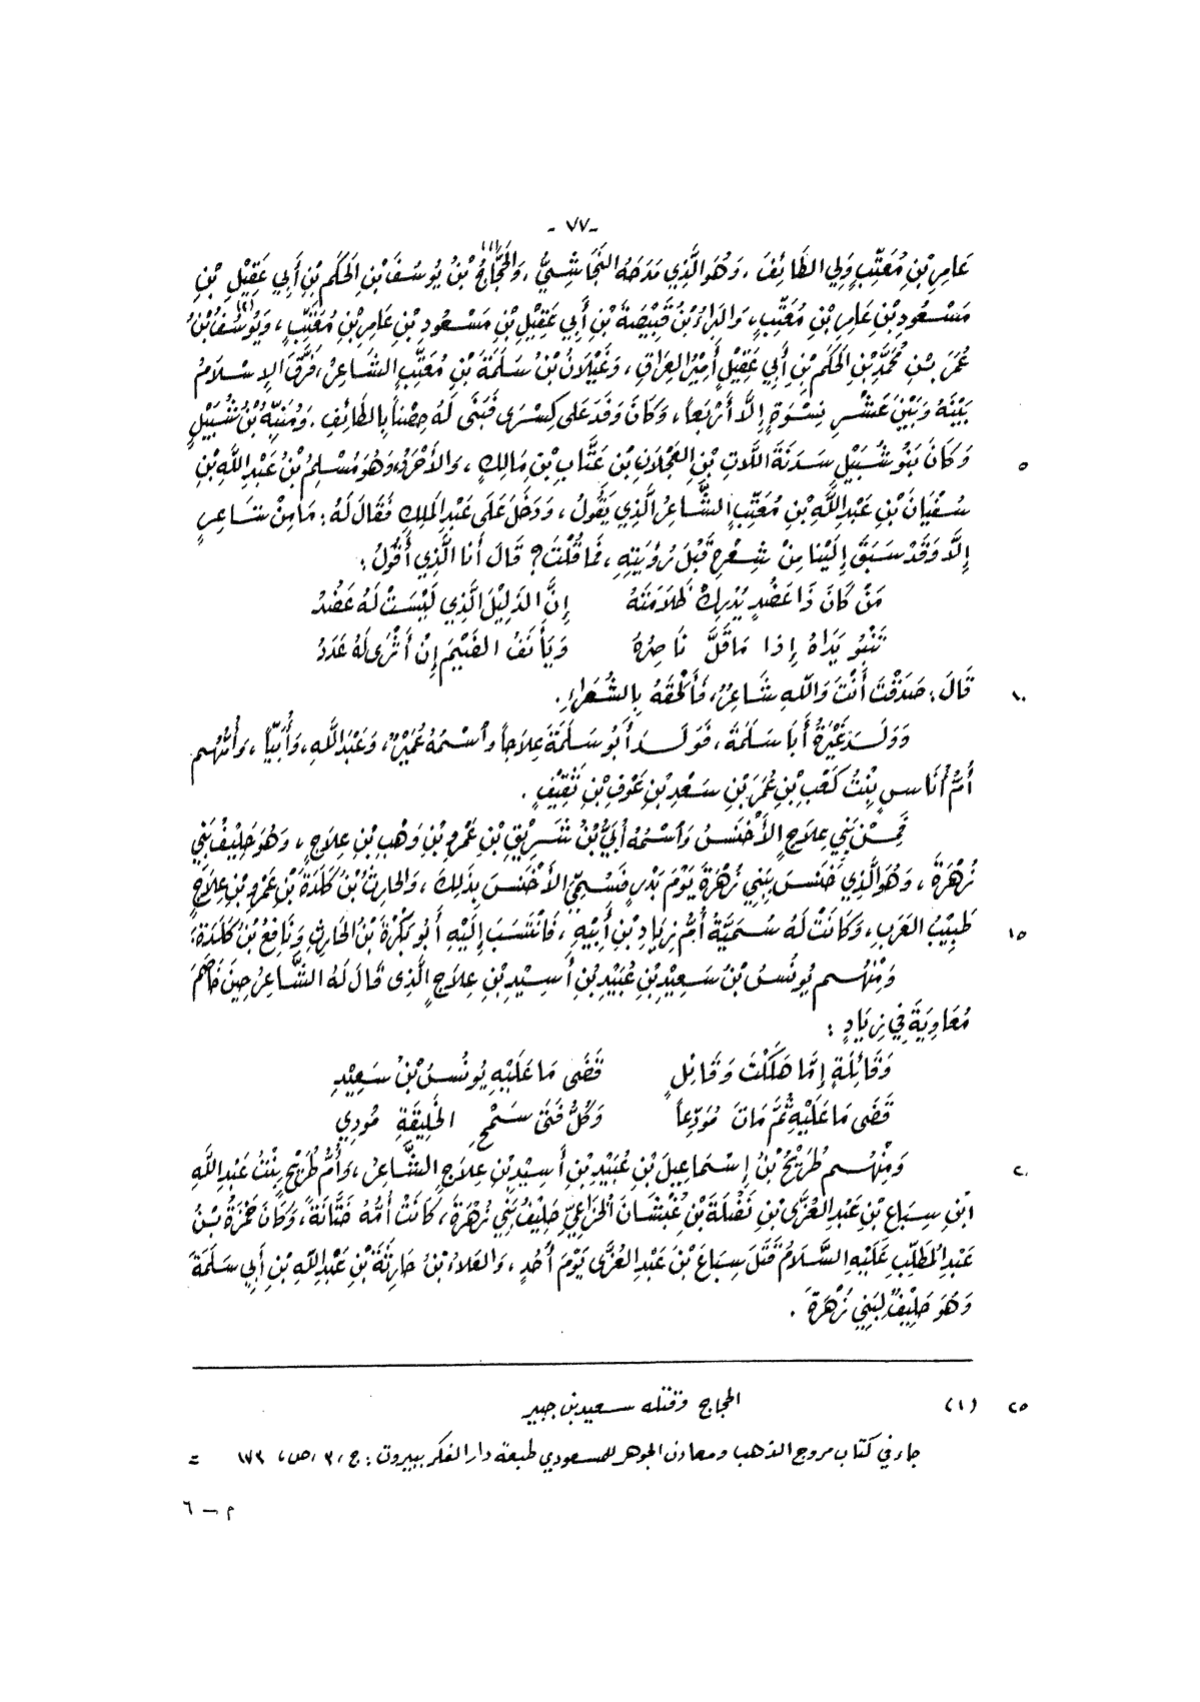 -٧٧-
عَامِرِ بْنِ مُعَتِّبٍ وَلِيَ الطَّائِفَ، وَهُوَ الَّذِي مَدَحَهُ النَّجَاشِيُّ، وَالحَجَّاجُ(١) بْنُ يُوسُفَ بْنِ الحَكَمِ بْنِ أَبِي عَقِيْلِ بْنِ
مَسْعُودِ بْنِ عَامِرِ بْنِ مُعَتِّبٍ، وَالبَرَاءُ بْنُ قَبِيْصَةَ بْنِ أَبِي عَقِيْلِ بْنِ مَسْعُودِ بْنِ عَامِرِ بْنِ مُعَتِّبٍ، وَيُوسُفُ(٢) بْنُ
عُمَرَ بْنِ مُحَمَّدِ بْنِ الحَكَمِ بْنِ أَبِي عَقِيْلٍ أَمِيْرُ العِرَاقِ، وَغَيْلَانُ بْنُ سَلَمَةَ بْنِ مُعَتِّبٍ الشَّاعِرُ، فَرَّقَ الإِسْلَامُ
بَيْنَهُ وَبَيْنَ عَشْرِ نِسْوَةٍ إِلَّا أَرْبَعاً، وَكَانَ وَفَدَ عَلَى كِسْرَى فَبَنَى لَهُ حِصْناً بِالطَّائِفِ. وَمُنَبِّهُ بْنُ شُبَيْلٍ
٥ وَكَانَ بَنُو شُبَيْلٍ سَدَنَةَ اللَّاتِ بْنِ العَجْلَانِ بْنِ عَتَّابِ بْنِ مَالِكٍ، وَالأَجْرَدُ وَهُوَ مُسْلِمُ بْنُ عَبْدِ اللَّهِ بْنِ
سُفْيَانَ بْنِ عَبْدِ اللَّهِ بْنِ مُعَتِّبٍ الشَّاعِرُ الَّذِي يَقُولُ، وَدَخَلَ عَلَى عَبْدِ المَلِكِ فَقَالَ لَهُ: مَا مِنْ شَاعِرٍ
إِلَّا وَقَدْ سَبَقَ إِلَيْنَا مِنْ شِعْرِهِ قَبْلَ رُؤْيَتِهِ، فَمَا قُلْتَ؟ قَالَ أَنَا الَّذِي أَقُولُ:
مَنْ كَانَ ذَا عَضُدٍ يُدْرِكْ ظُلَامَتَهُ إِنَّ الذَّلِيْلَ الَّذِي لَيْسَتْ لَهُ عَضُدُ
تَنْبُو يَدَاهُ إِذَا مَا قَلَّ نَاصِرُهُ وَيَأْنَفُ الضَّيْمَ إِنْ أَثْرَى لَهُ عَدَدُ
١٠ قَالَ: صَدَقْتَ أَنْتَ وَاللَّهِ شَاعِرٌ، فَأَلْحَقَهُ بِالشُّعَرَاءِ.
وَوَلَدَ غِيَرَةُ أَبَا سَلَمَةَ، فَوَلَدَ أَبُو سَلَمَةَ عِلَاجاً وَاسْمُهُ عُمَيْرٌ، وَعَبْدَ اللَّهِ، وَأُبَيّاً، وَأُمُّهُم
أُمُّ أُنَاسٍ بِنْتُ كَعْبِ بْنِ عُمَرَ بْنِ سَعْدِ بْنِ عَوْفِ بْنِ ثَقِيْفٍ.
فَمِنْ بَنِي عِلَاجٍ الأَخْنَسُ وَاسْمُهُ أُبَيُّ بْنُ شَرِيْقِ بْنِ عَمْرِو بْنِ وَهْبِ بْنِ عِلَاجٍ، وَهُوَ حَلِيْفُ بَنِي
زُهْرَةَ، وَهُوَ الَّذِي خَنَسَ بِبَنِي زُهْرَةَ يَوْمَ بَدْرٍ فَسُمِّيَ الأَخْنَسَ بِذَلِكَ، وَالحَارِثُ بْنُ كَلَدَةَ بْنِ عَمْرِو بْنِ عِلَاجٍ
١٥ طَبِيْبُ العَرَبِ، وَكَانَتْ لَهُ سُمَيَّةُ أُمُّ زِيَادِ بْنِ أَبِيْهِ، فَانْتَسَبَ إِلَيْهِ أَبُو بَكْرَةَ بْنُ الحَارِثِ وَنَافِعُ بْنُ كَلَدَةَ.
وَمِنْهُم يُونُسُ بْنُ سَعِيْدِ بْنِ عُبَيْدِ بْنِ أَسِيْدِ بْنِ عِلَاجٍ الَّذِي قَالَ لَهُ الشَّاعِرُ حِيْنَ خَاصَمَ
مُعَاوِيَةَ فِي زِيَادٍ:
وَقَائِلَةٍ إِمَّا هَلَكْتَ وَقَائِلٍ قَضَى مَا عَلَيْهِ يُونُسُ بْنُ سَعِيْدِ
قَضَى مَا عَلَيْهِ ثُمَّ مَاتَ مُوَدَّعاً وَكُلُّ فَتًى سَمْحِ الخَلِيْقَةِ مُودِي
٢٠ وَمِنْهُم طُرَيْحُ بْنُ إِسْمَاعِيلَ بْنِ عُبَيْدِ بْنِ أَسِيْدِ بْنِ عِلَاجٍ الشَّاعِرُ، وَأُمُّ طُرَيْحٍ بِنْتُ عَبْدِ اللَّهِ
ابْنِ سِبَاعِ بْنِ عَبْدِ العُزَّى بْنِ نَضْلَةَ بْنِ غُبْشَانَ الخُزَاعِيِّ حَلِيْفُ بَنِي زُهْرَةَ، كَانَتْ أُمُّهُ خَتَّانَةً، وَكَانَ حَمْزَةُ بْنُ
عَبْدِ المُطَّلِبِ عَلَيْهِ السَّلَامُ قَتَلَ سِبَاعَ بْنَ عَبْدِ العُزَّى يَوْمَ أُحُدٍ، وَالعَلَاءُ بْنُ حَارِثَةَ بْنِ عَبْدِ اللَّهِ بْنِ أَبِي سَلَمَةَ
وَهُوَ حَلِيْفٌ لِبَنِي زُهْرَةَ.
٢٥ (١) الحجاج وقتله سعيد بن جبير
جاء في كتاب مروج الذهب ومعادن الجوهر للمسعودي طبعة دار الفكر ببيروت: ج/٣، ص، ١٧٣ =
م-٦